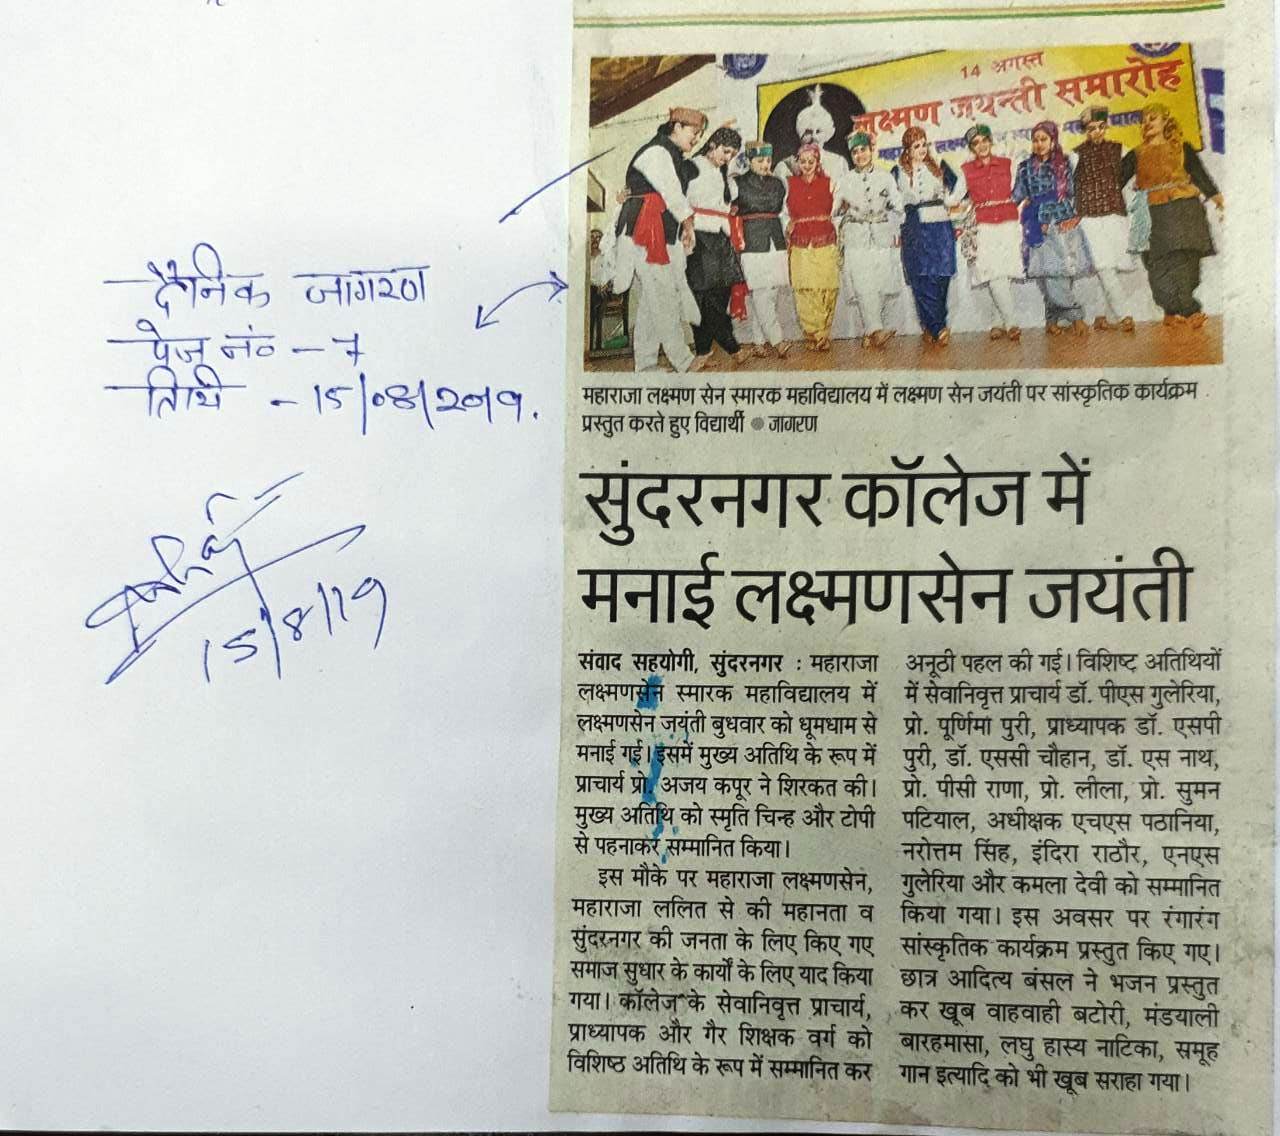 दैनिक जागरण
पेज नं० - 7
तिथि - 15/08/2019.
15/8/19
14 अगस्त
लक्ष्मण जयन्ती समारोह
महाराजा लक्ष्मण सेन स्मारक महाविद्यालय में लक्ष्मण सेन जयंती पर सांस्कृतिक कार्यक्रम
प्रस्तुत करते हुए विद्यार्थी ● जागरण
सुंदरनगर कॉलेज में
मनाई लक्ष्मणसेन जयंती
संवाद सहयोगी, सुंदरनगर : महाराजा
लक्ष्मणसेन स्मारक महाविद्यालय में
लक्ष्मणसेन जयंती बुधवार को धूमधाम से
मनाई गई। इसमें मुख्य अतिथि के रूप में
प्राचार्य प्रो. अजय कपूर ने शिरकत की।
मुख्य अतिथि को स्मृति चिन्ह और टोपी
से पहनाकर सम्मानित किया।
इस मौके पर महाराजा लक्ष्मणसेन,
महाराजा ललित से की महानता व
सुंदरनगर की जनता के लिए किए गए
समाज सुधार के कार्यों के लिए याद किया
गया। कॉलेज के सेवानिवृत्त प्राचार्य,
प्राध्यापक और गैर शिक्षक वर्ग को
विशिष्ठ अतिथि के रूप में सम्मानित कर
अनूठी पहल की गई। विशिष्ट अतिथियों
में सेवानिवृत्त प्राचार्य डॉ. पीएस गुलेरिया,
प्रो. पूर्णिमा पुरी, प्राध्यापक डॉ. एसपी
पुरी, डॉ. एससी चौहान, डॉ. एस नाथ,
प्रो. पीसी राणा, प्रो. लीला, प्रो. सुमन
पटियाल, अधीक्षक एचएस पठानिया,
नरोत्तम सिंह, इंदिरा राठौर, एनएस
गुलेरिया और कमला देवी को सम्मानित
किया गया। इस अवसर पर रंगारंग
सांस्कृतिक कार्यक्रम प्रस्तुत किए गए।
छात्र आदित्य बंसल ने भजन प्रस्तुत
कर खूब वाहवाही बटोरी, मंडयाली
बारहमासा, लघु हास्य नाटिका, समूह
गान इत्यादि को भी खूब सराहा गया।